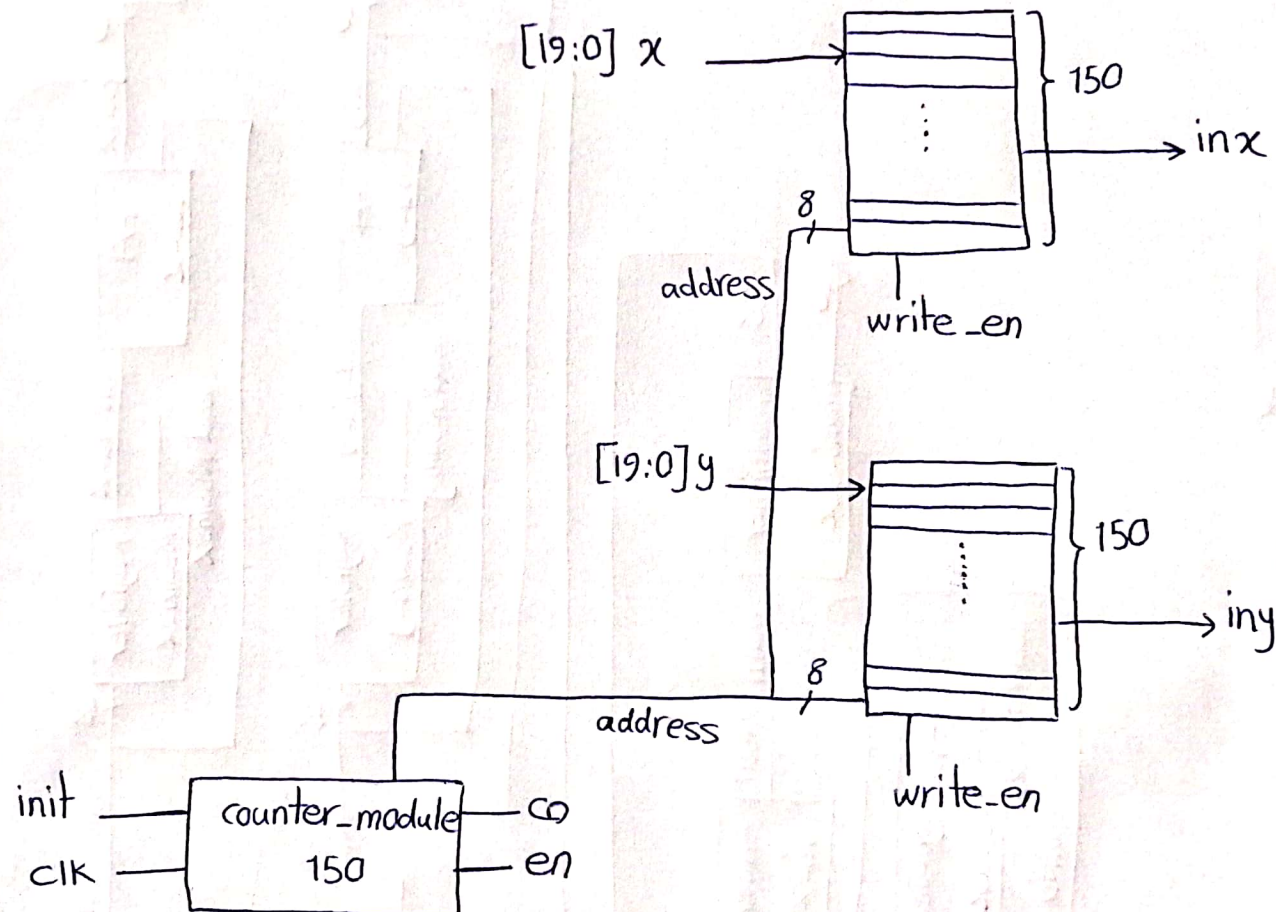 [19:0] x
150
inx
8
address
write_en
[19:0] y
150
iny
8
address
write_en
init
counter_module
co
clk
150
en